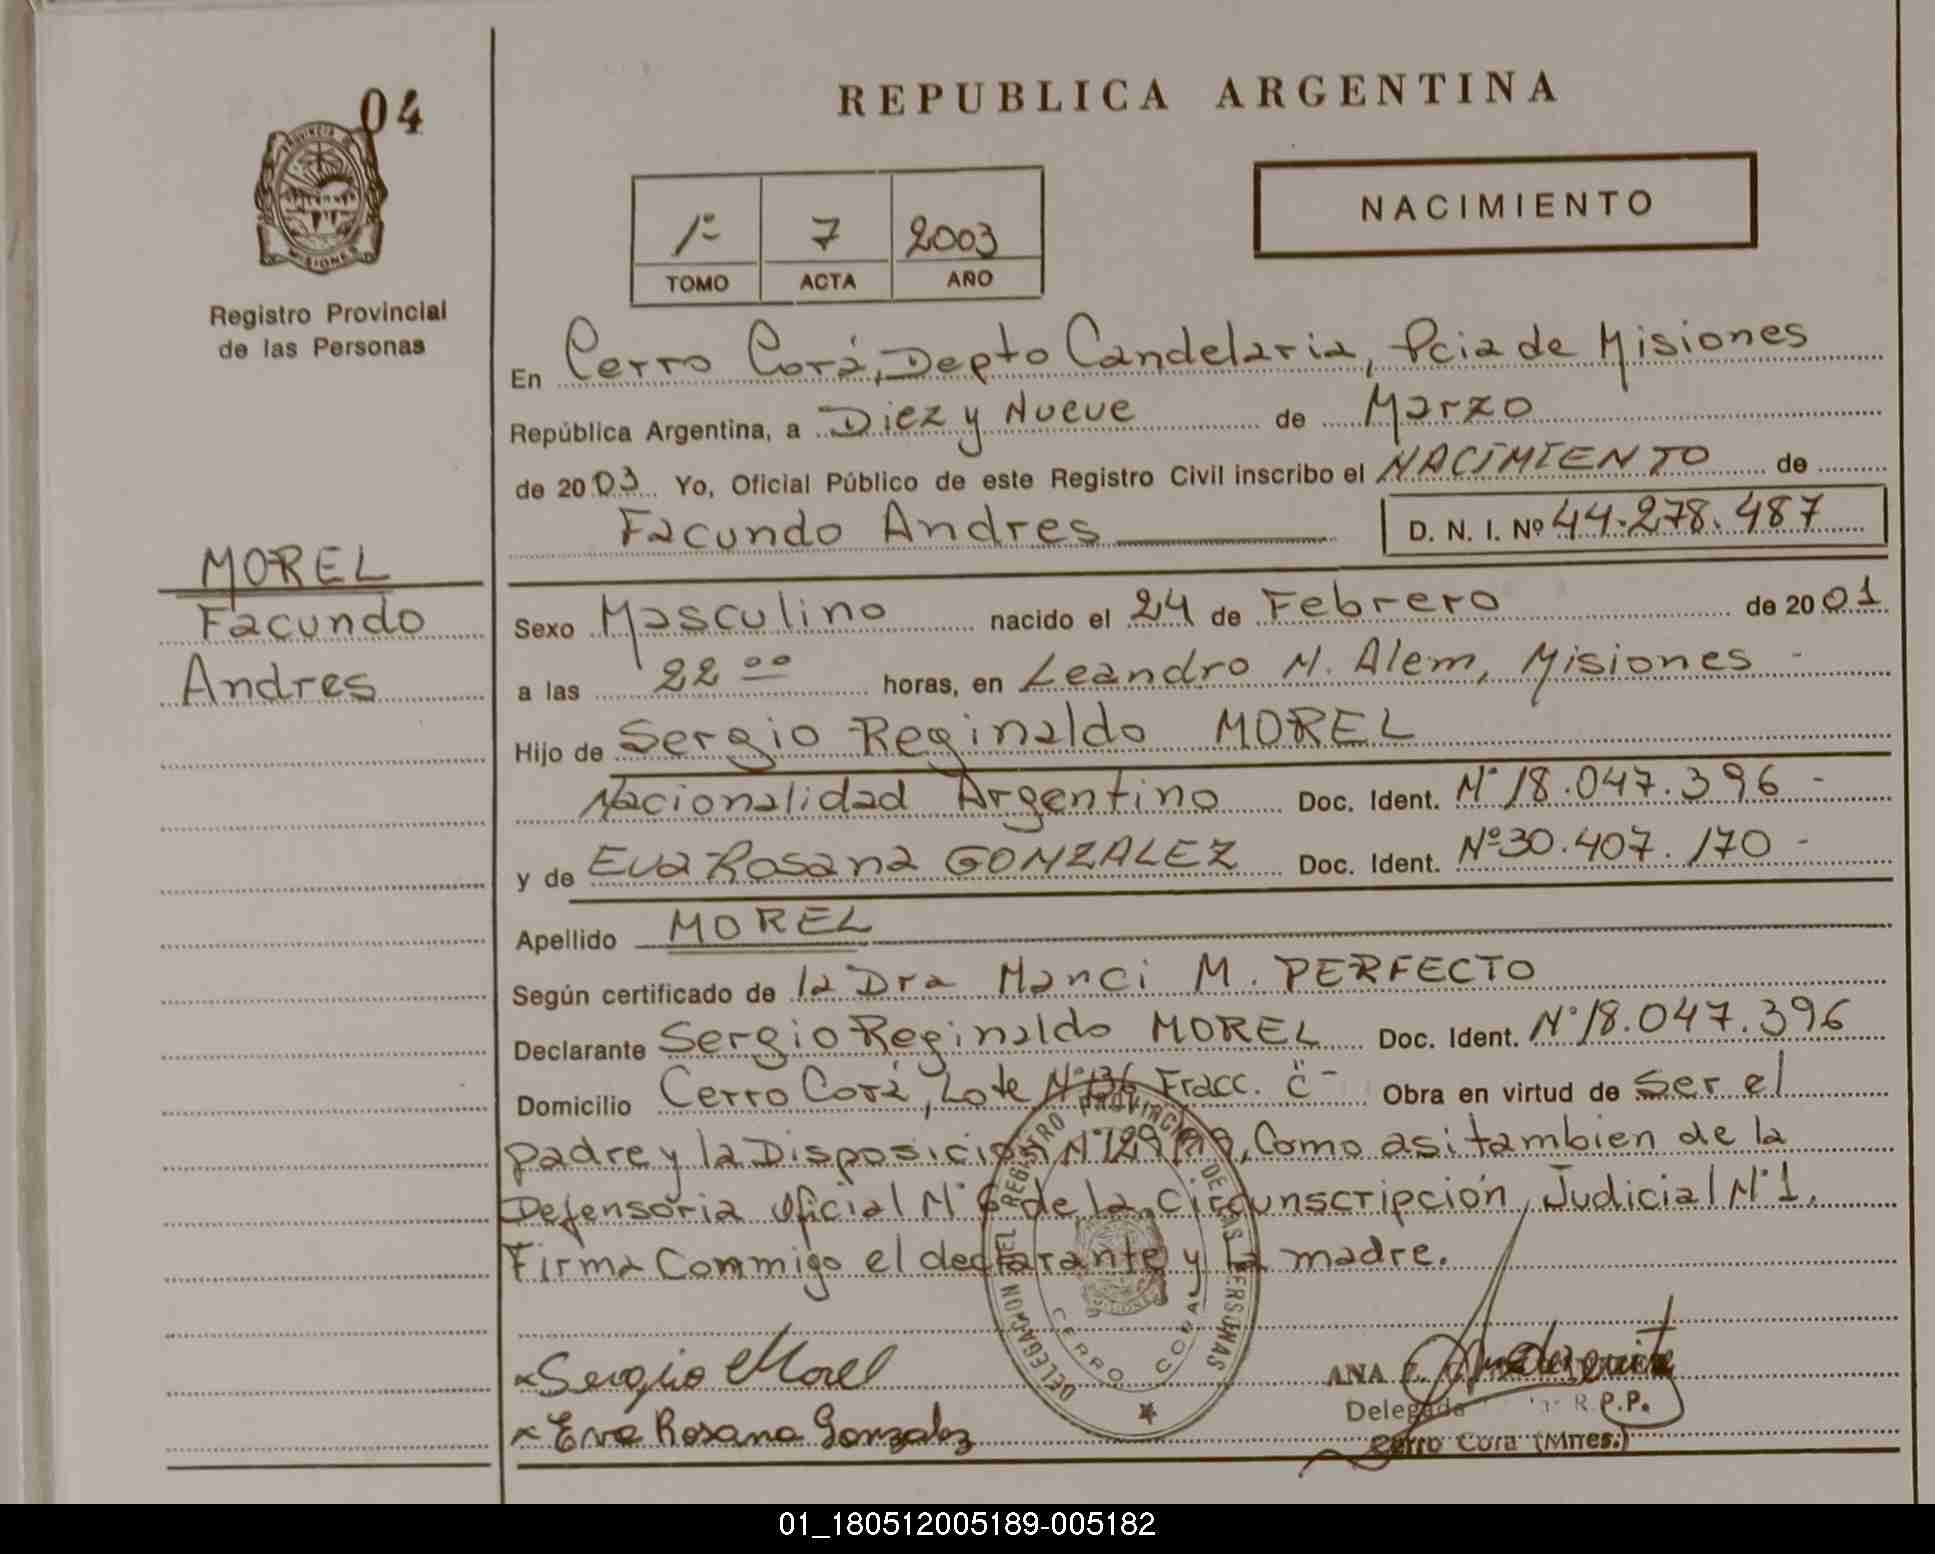 04
REPUBLICA ARGENTINA
NACIMIENTO
1º 7 2003
TOMO ACTA AÑO
Registro Provincial
de las Personas
En Cerro Corá, Depto Candelaria, Pcia de Misiones
República Argentina, a Diez y Nueve de Marzo
de 2003 Yo, Oficial Público de este Registro Civil inscribo el NACIMIENTO de
Facundo Andres D. N. I. Nº 44.278.487
MOREL
Facundo
Andres
Sexo Masculino nacido el 24 de Febrero de 2001
a las 22 00 horas, en Leandro N. Alem, Misiones -
Hijo de Sergio Reginaldo MOREL
Nacionalidad Argentino Doc. Ident. Nº 18.047.396 -
y de Eva Rosana GONZALEZ Doc. Ident. Nº 30.407.170 -
Apellido MOREL
Según certificado de la Dra Nanci M. PERFECTO
Declarante Sergio Reginaldo MOREL Doc. Ident. Nº 18.047.396
Domicilio Cerro Corá, Lote Nº 136 Fracc. "C" - Obra en virtud de Ser el
padre y la Disposición Nº 129 , Como asi tambien de la
Defensoria Oficial Nº 6 de la Circunscripción Judicial Nº 1.
Firma Conmigo el declarante y la madre.
DELEGACION DEL REGISTRO PROVINCIAL DE LAS PERSONAS
CERRO CORA
MISIONES
Sergio Morel
Eva Rosana Gonzalez
ANA
Delegada R.P.P.
Cerro Cora (Mnes.)
01_180512005189-005182